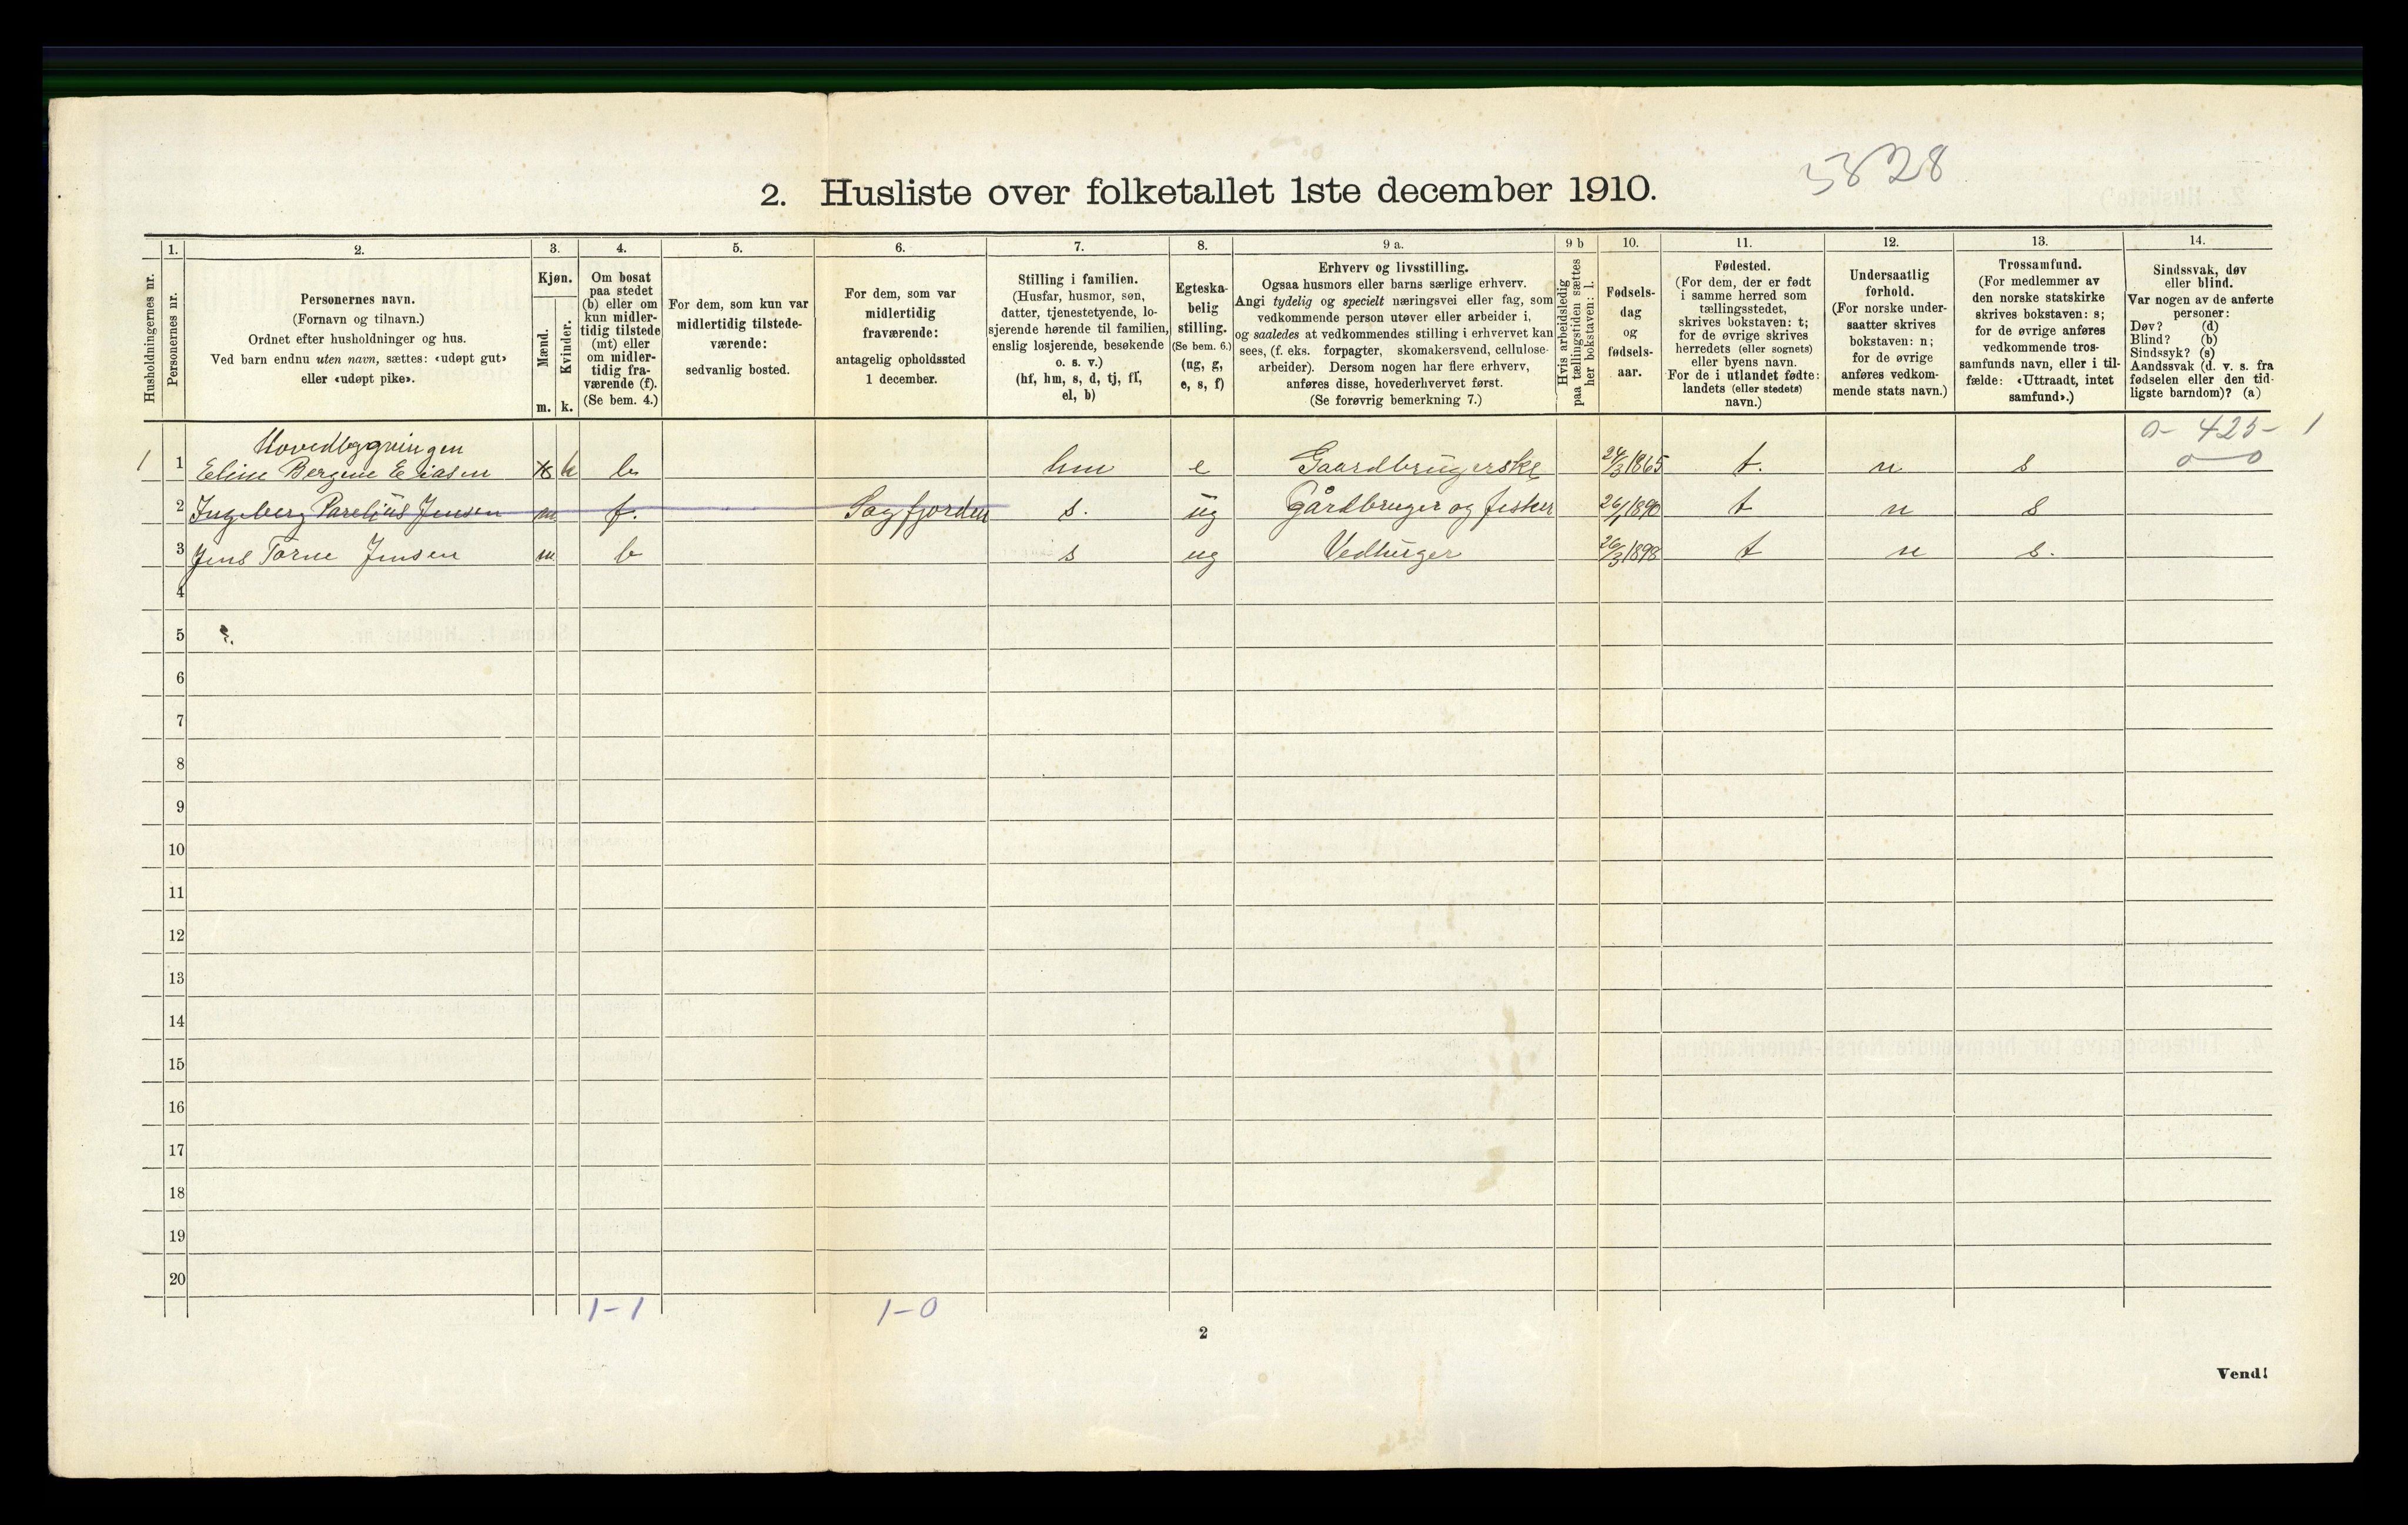 5828
2. Husliste over folketallet 1ste december 1910.
Husholdningernes nr.
1.
Personernes nr.
2.
Personernes navn.
(Fornavn og tilnavn.)
Ordnet efter husholdninger og hus.
Ved barn endnu uten navn, sættes: «udøpt gut»
eller «udøpt pike».
3.
Kjøn.
Mænd.
Kvinder.
m. k.
4.
Om bosat
paa stedet
(b) eller om
kun midler-
tidig tilstede
(mt) eller
om midler-
tidig fra-
værende (f).
(Se bem. 4.)
5.
For dem, som kun var
midlertidig tilstede-
værende:
sedvanlig bosted.
6.
For dem, som var
midlertidig
fraværende:
antagelig opholdssted
1 december.
7.
Stilling i familien.
(Husfar, husmor, søn,
datter, tjenestetyende, lo-
sjerende hørende til familien,
enslig losjerende, besøkende
o. s. v.)
(hf, hm, s, d, tj, fl,
el, b)
8.
Egteska-
belig
stilling.
(Se bem. 6.)
(ug, g,
e, s, f)
9 a.
Erhverv og livsstilling.
Ogsaa husmors eller barns særlige erhverv.
Angi tydelig og specielt næringsvei eller fag, som
vedkommende person utøver eller arbeider i,
og saaledes at vedkommendes stilling i erhvervet kan
sees, (f. eks. forpagter, skomakersvend, cellulose-
arbeider). Dersom nogen har flere erhverv,
anføres disse, hovederhvervet først.
(Se forøvrig bemerkning 7.)
9 b
Hvis arbeidsledig
paa tællingstiden sættes
her bokstaven: l.
10.
Fødsels-
dag
og
fødsels-
aar.
11.
Fødested.
(For dem, der er født
i samme herred som
tællingsstedet,
skrives bokstaven: t;
for de øvrige skrives
herredets (eller sognets)
eller byens navn.
For de i utlandet fødte:
landets (eller stedets)
navn.)
12.
Undersaatlig
forhold.
(For norske under-
saatter skrives
bokstaven: n;
for de øvrige
anføres vedkom-
mende stats navn.)
13.
Trossamfund.
(For medlemmer av
den norske statskirke
skrives bokstaven: s;
for de øvrige anføres
vedkommende tros-
samfunds navn, eller i til-
fælde: «Uttraadt, intet
samfund».)
14.
Sindssvak, døv
eller blind.
Var nogen av de anførte
personer:
Døv? (d)
Blind? (b)
Sindssyk? (s)
Aandssvak (d. v. s. fra
fødselen eller den tid-
ligste barndom)? (a)
0 - 425 - 1
0 - 0
Hovedbygningen
1 1 Eline Bergine Eliasen k b hm e Gaardbrugerske 24/3 1865 t. n s
2 Ingeberg Parelius Jensen m f. Sagfjorden s. ug Gårdbruger og fisker 26/1 1890 t n s
3 Jens Tørne Jensen m b s ug Vedhuger 26/3 1898 t n s.
4
5
6
7
8
9
10
11
12
13
14
15
16
17
18
19
20
1-1 1-0
2
Vend!